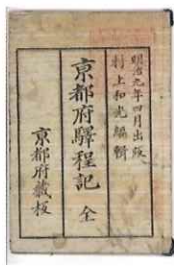 明治九年四月出版
村上和光編輯
京都府驛程記 全
京都府蔵板